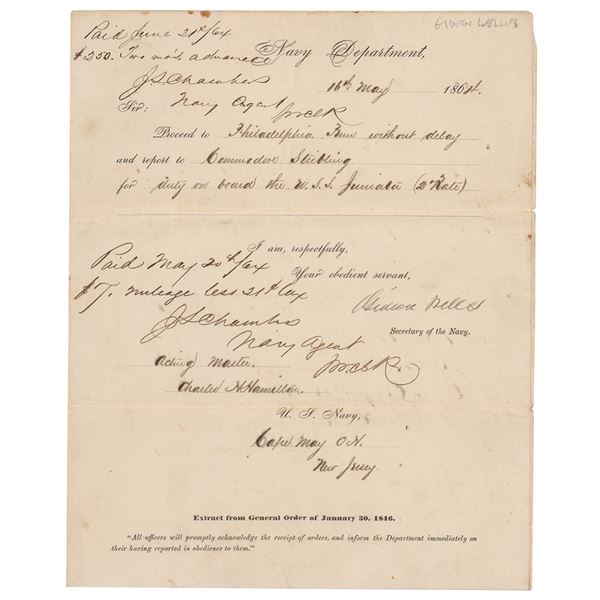 GIDEON WELLES
Paid June 21st/64
$250. Two mo's advance
J S Chambers
Navy Agent
Navy Department,
16th May 1864.
Sir:
Proceed to Philadelphia Penn without delay
and report to Commodore Stribling
for duty on board the U.S.S. Juniata (2d Rate)
I am, respectfully,
Your obedient servant,
Gideon Welles
Secretary of the Navy.
Paid May 20th/64
$7. mileage less 21st
J S Chambers
Navy Agent
Acting Master
Charles H Hamilton.
U. S. Navy,
Cape May C.H.
New Jersey
Extract from General Order of January 30, 1846.
"All officers will promptly acknowledge the receipt of orders, and inform the Department immediately on
their having reported in obedience to them."